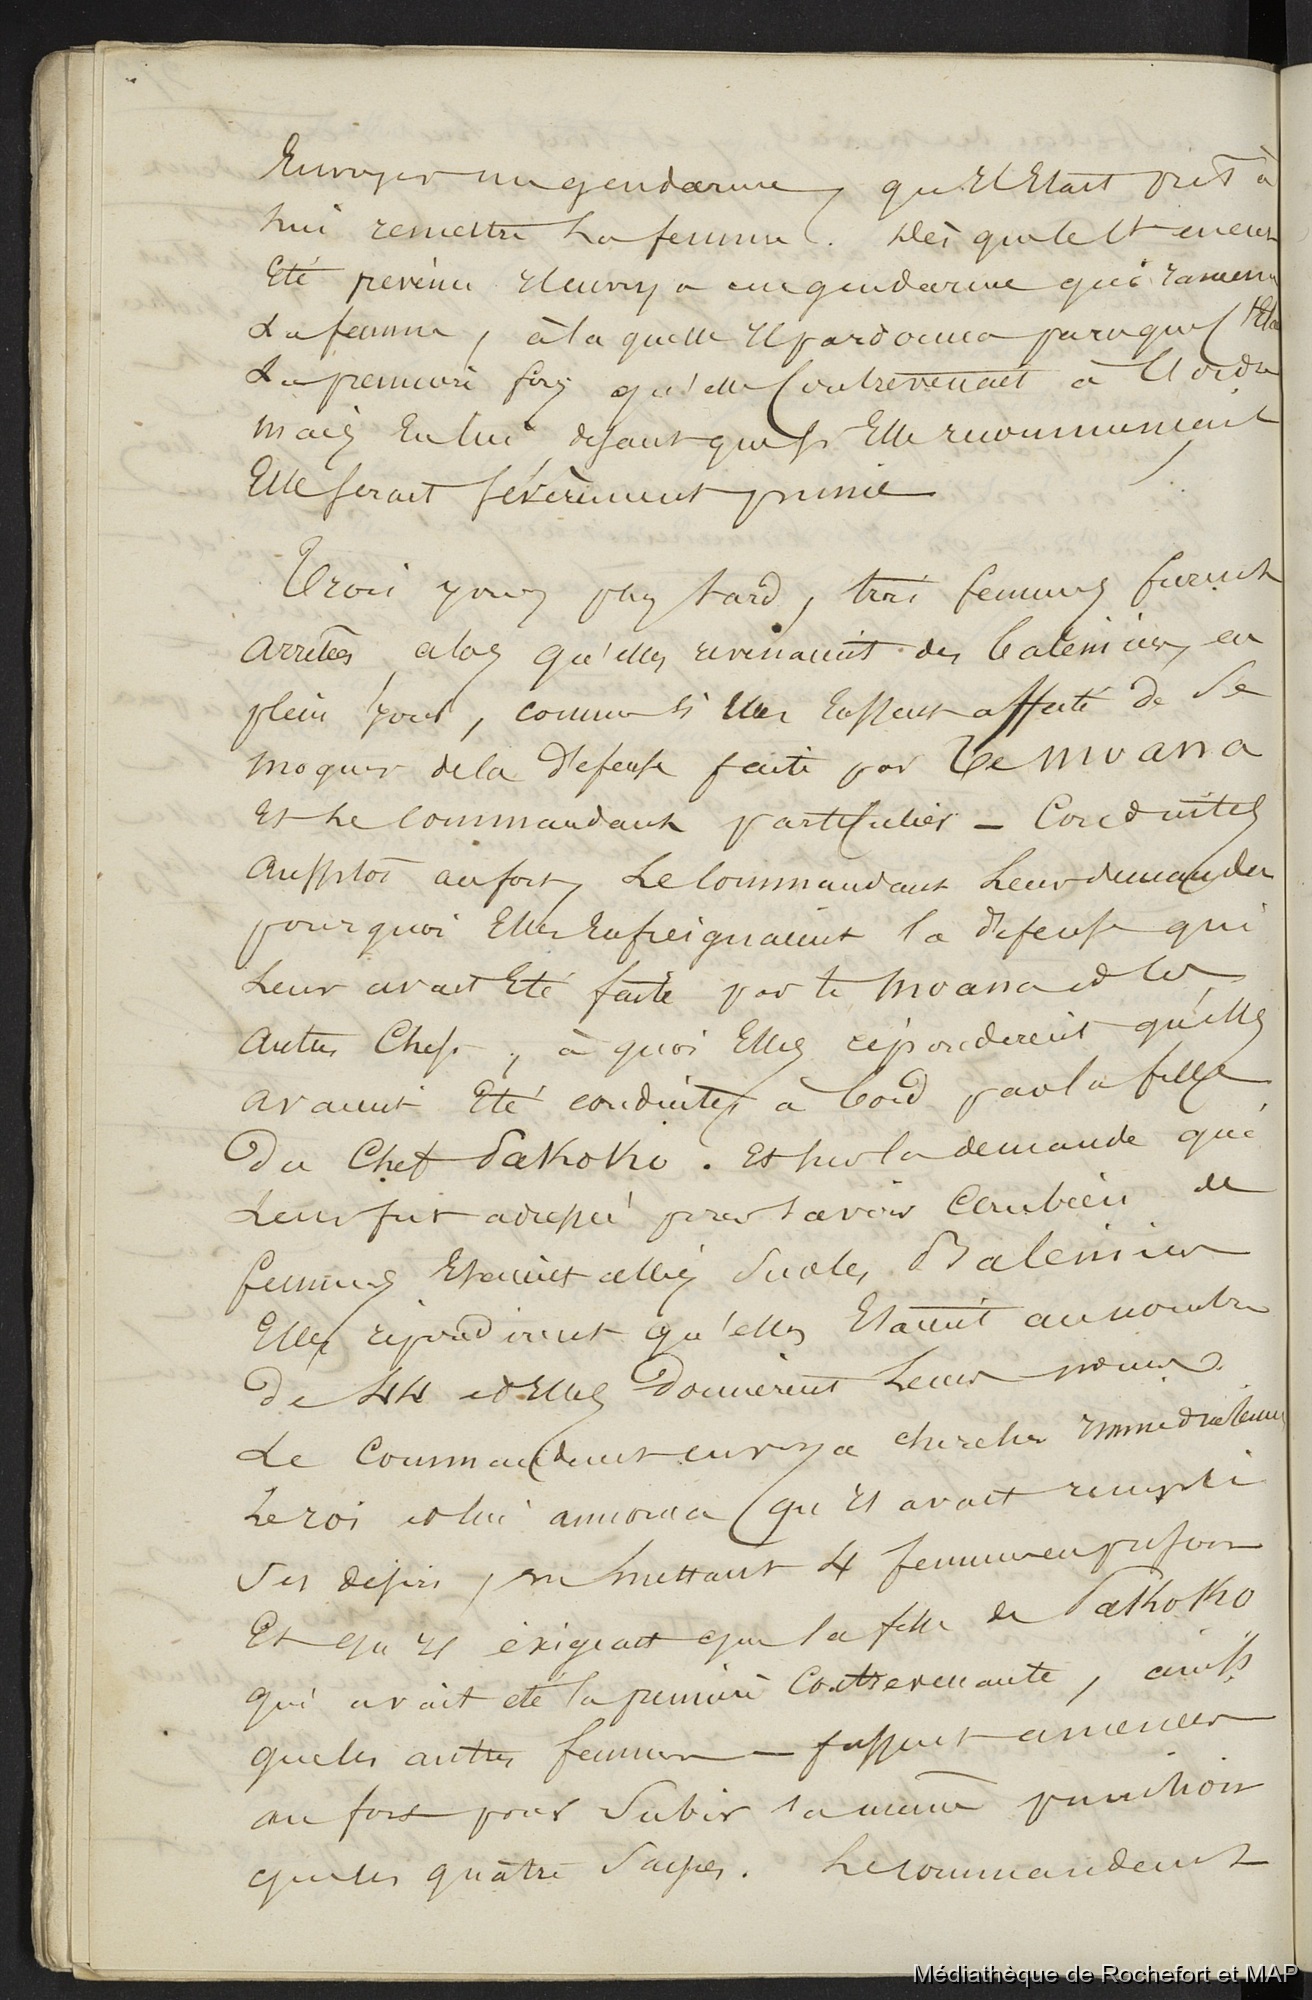 Envoyer un gendarme, qu'il Etait prêt à
lui remettre La femme. Dès que le Ct en eut
Eté prévenu il envoya un gendarme qui ramena
La femme, à la quelle il pardonna parceque c'Etait
La premiere fois qu'elle Contrevenait à l'ordre
mais En lui disant que si Elle recommencait,
Elle serait sévèrement punie

Trois jours plus tard, trois femmes furent
arrêtées, alors qu'elles revenaient des baleiniers, en
plein jour, comme si Elles Eussent affecté de Se
moquer de la défense faite par Te Moana
Et Le Commandant particulier - Conduites
aussitôt au fort, Le Commandant Leur demanda
pourquoi Elles Enfreignaient la défense qui
Leur avait Eté faite par te Moana et les
autres Chefs, à quoi Elles répondirent qu'elles
avaient Eté conduites à bord par la fille
Du Chef Pakoko. Et sur la demande qui
Leur fut adressée pour savoir Combien de
femmes Etaient allées Sur les Baleiniers
Elles répondirent qu'elles Etaient au nombre
De 44 et Elles Donnèrent Leurs noms.
Le Commandant envoya chercher immédiatement
Le roi et lui annonca qu'il avait rempli
Ses désirs, en mettant 4 femmes en prison
Et qu'il exigeait que la fille de Pakoko
qui avait été la première Contrevenante, ainsi
que les autres femmes - fussent amenées
au fort pour Subir la même punition
que les quatre Saisies. Le commandant
Médiathèque de Rochefort et MAP